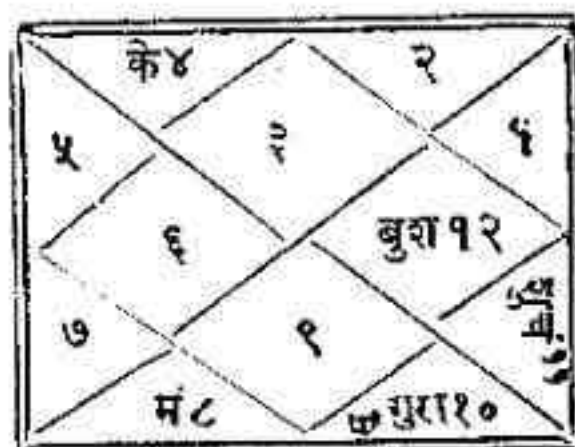 के४
२
५
३
१
६
बुश१२
७
९
मं८
गुरा१०